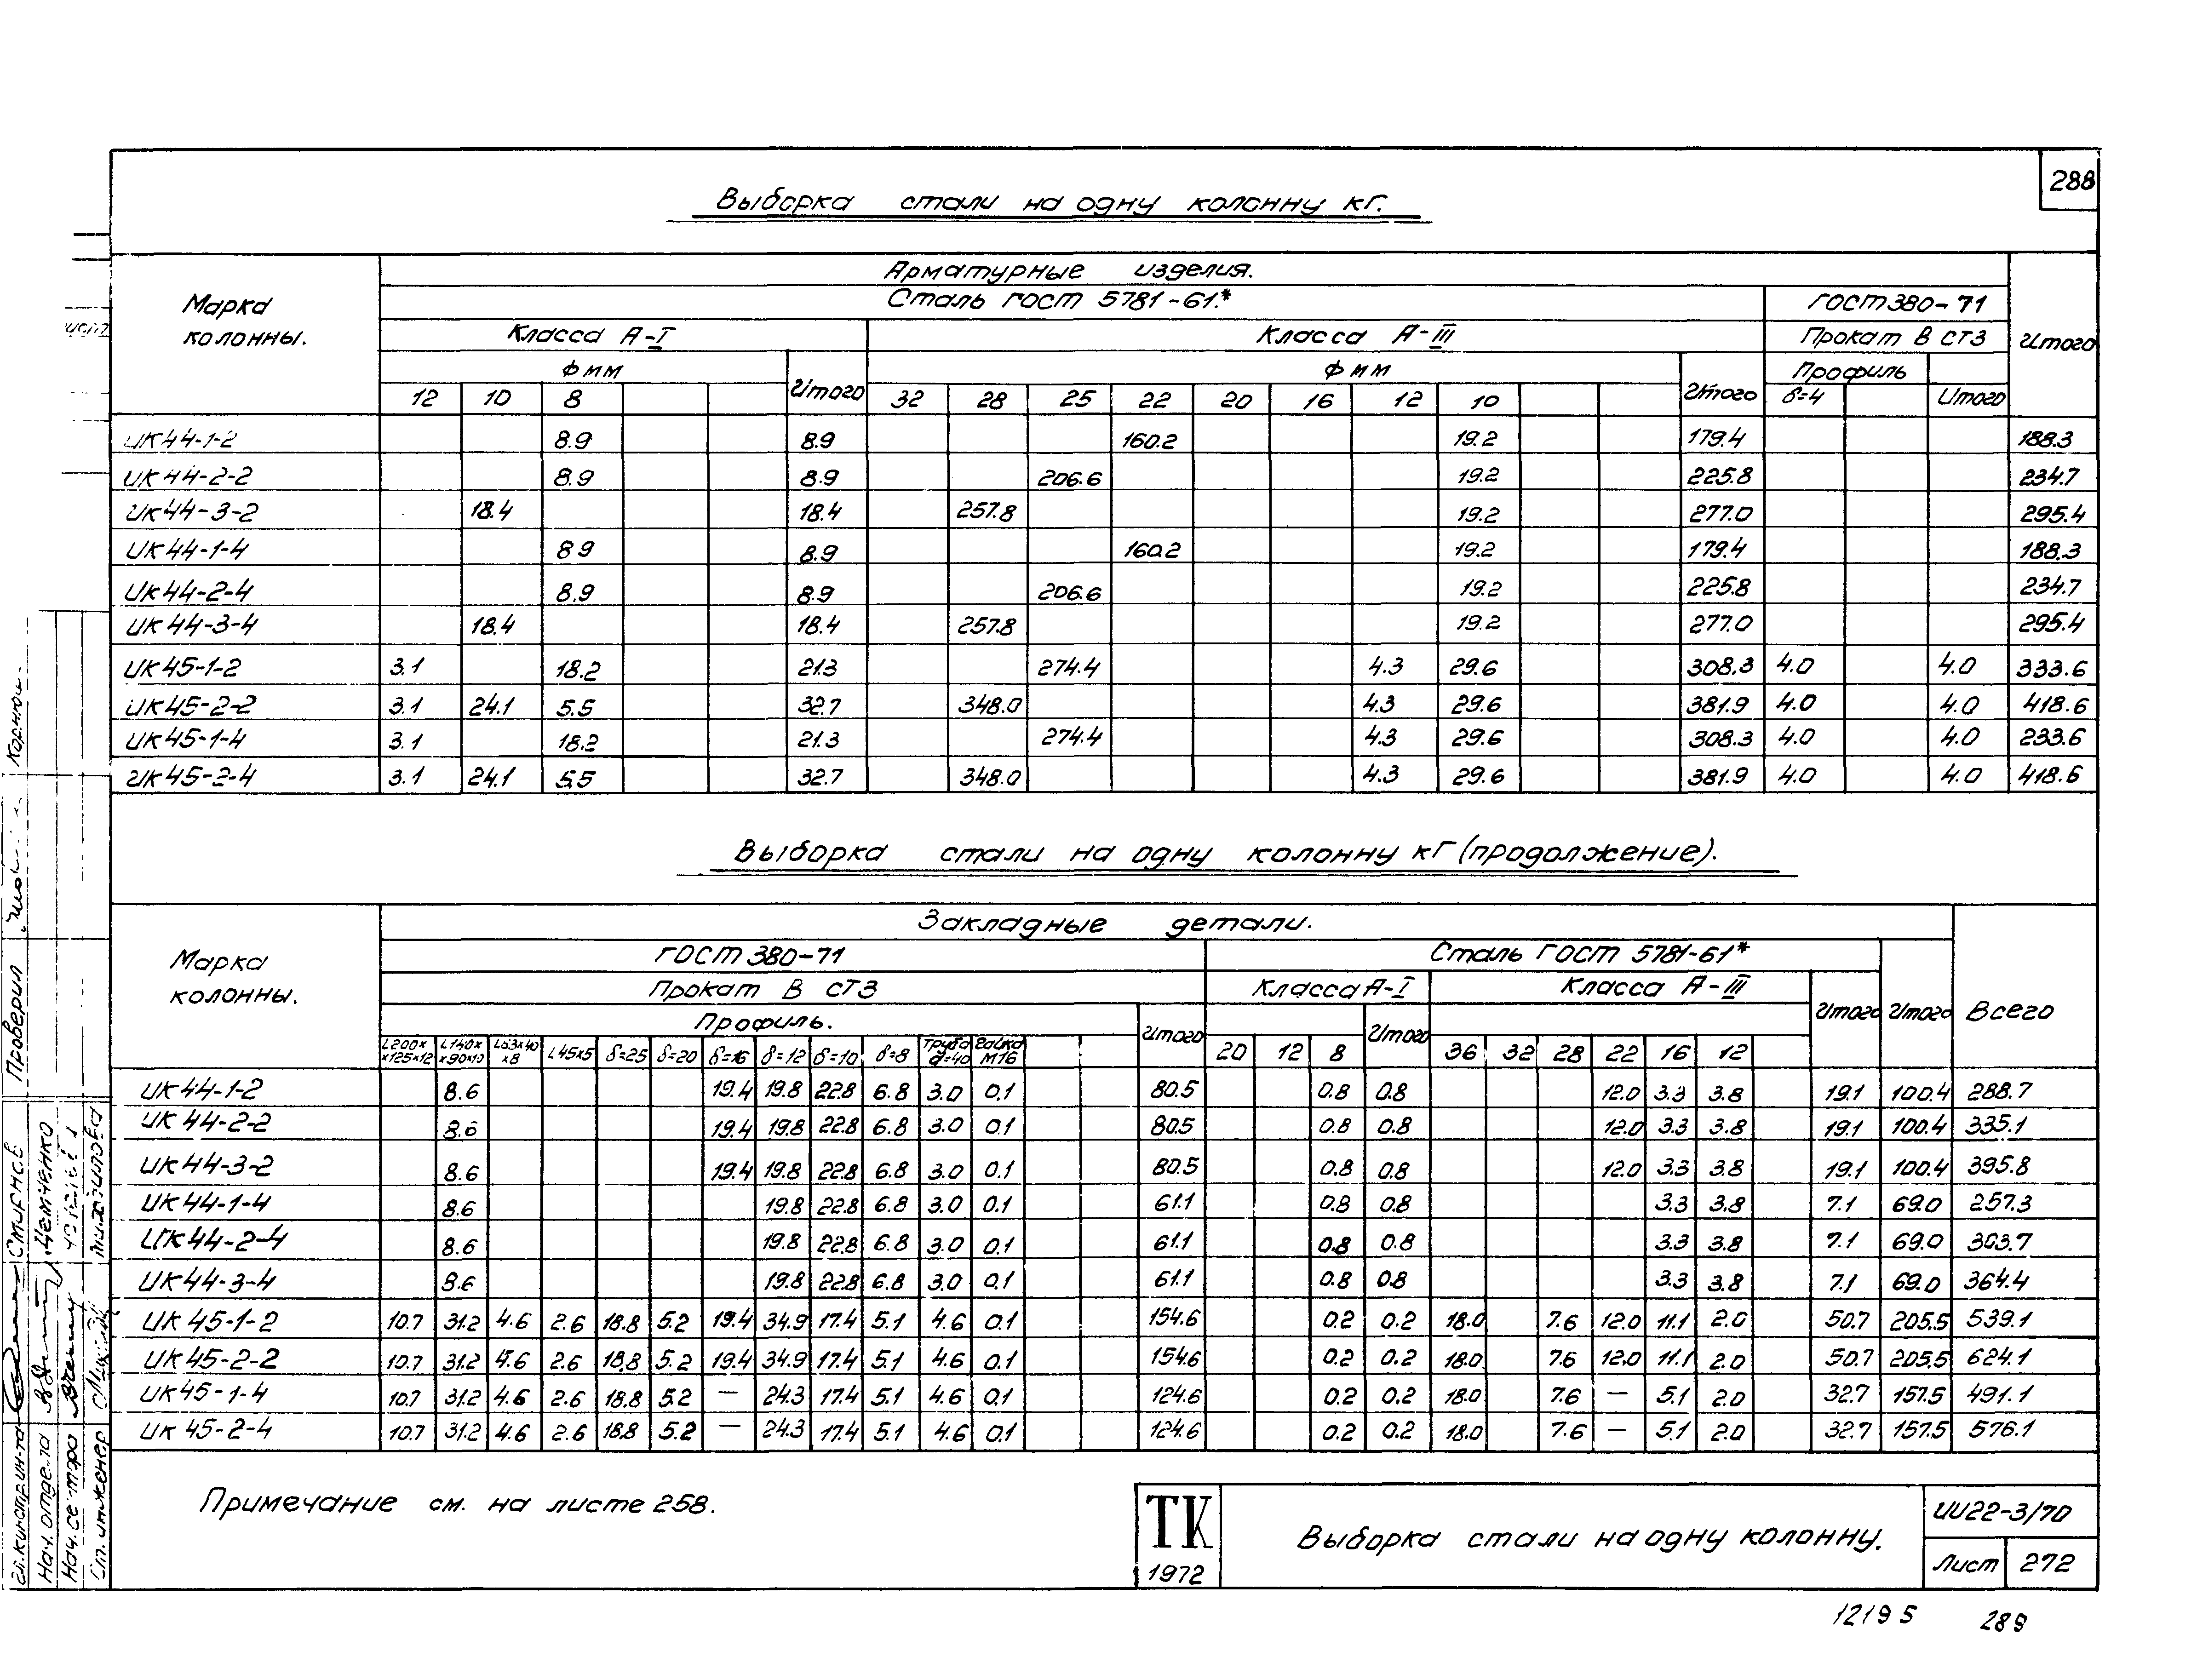 288
Выборка стали на одну колонну кг.
Марка колонны.
Арматурные изделия.
Итого
Сталь ГОСТ 5781-61.*
ГОСТ 380-71
Класса А-I
Класса А-III
Прокат В СТ3
Ф мм
Итого
Ф мм
Итого
Профиль
12 10 8 32 28 25 22 20 16 12 10 δ=4 Итого
ИК44-1-2 8.9 8.9 160.2 19.2 179.4 188.3
ИК44-2-2 8.9 8.9 206.6 19.2 225.8 234.7
ИК44-3-2 18.4 18.4 257.8 19.2 277.0 295.4
ИК44-1-4 8 9 8.9 160.2 19.2 179.4 188.3
ИК44-2-4 8.9 8.9 206.6 19.2 225.8 234.7
ИК44-3-4 18.4 18.4 257.8 19.2 277.0 295.4
ИК45-1-2 3.1 18.2 21.3 274.4 4.3 29.6 308.3 4.0 4.0 333.6
ИК45-2-2 3.1 24.1 5.5 32.7 348.0 4.3 29.6 381.9 4.0 4.0 418.6
ИК45-1-4 3.1 18.2 21.3 274.4 4.3 29.6 308.3 4.0 4.0 233.6
ИК45-2-4 3.1 24.1 5.5 32.7 348.0 4.3 29.6 381.9 4.0 4.0 418.6
Выборка стали на одну колонну кг (продолжение).
Марка колонны.
Закладные детали.
Всего
ГОСТ 380-71
Сталь ГОСТ 5781-61*
Итого
Прокат В СТ3
Класса А-I
Класса А-III
Итого
Профиль.
Итого
Итого
L200××125×12 L140××90×10 L63×40×8 L45×5 δ=25 δ=20 δ=16 δ=12 δ=10 δ=8 Труба d=40 Гайка М16 20 12 8 36 32 28 22 16 12
ИК44-1-2 8.6 19.4 19.8 22.8 6.8 3.0 0.1 80.5 0.8 0.8 12.0 3.3 3.8 19.1 100.4 288.7
ИК 44-2-2 8.6 19.4 19.8 22.8 6.8 3.0 0.1 80.5 0.8 0.8 12.0 3.3 3.8 19.1 100.4 335.1
ИК44-3-2 8.6 19.4 19.8 22.8 6.8 3.0 0.1 80.5 0.8 0.8 12.0 3.3 3.8 19.1 100.4 395.8
ИК44-1-4 8.6 19.8 22.8 6.8 3.0 0.1 61.1 0.8 0.8 3.3 3.8 7.1 69.0 257.3
ИК44-2-4 8.6 19.8 22.8 6.8 3.0 0.1 61.1 0.8 0.8 3.3 3.8 7.1 69.0 303.7
ИК44-3-4 8.6 19.8 22.8 6.8 3.0 0.1 61.1 0.8 0.8 3.3 3.8 7.1 69.0 364.4
ИК 45-1-2 10.7 31.2 4.6 2.6 18.8 5.2 19.4 34.9 17.4 5.1 4.6 0.1 154.6 0.2 0.2 18.0 7.6 12.0 11.1 2.0 50.7 205.5 539.1
ИК 45-2-2 10.7 31.2 4.6 2.6 18.8 5.2 19.4 34.9 17.4 5.1 4.6 0.1 154.6 0.2 0.2 18.0 7.6 12.0 11.1 2.0 50.7 205.5 624.1
ИК 45-1-4 10.7 31.2 4.6 2.6 18.8 5.2 — 24.3 17.4 5.1 4.6 0.1 124.6 0.2 0.2 18.0 7.6 — 5.1 2.0 32.7 157.5 491.1
ИК 45-2-4 10.7 31.2 4.6 2.6 18.8 5.2 — 24.3 17.4 5.1 4.6 0.1 124.6 0.2 0.2 18.0 7.6 — 5.1 2.0 32.7 157.5 576.1
Примечание см. на листе 258.
ТК
1972
Выборка стали на одну колонну.
ИИ22-3/70
Лист 272
12195 289
Проверил
Нач. отдела
Ст. инженер